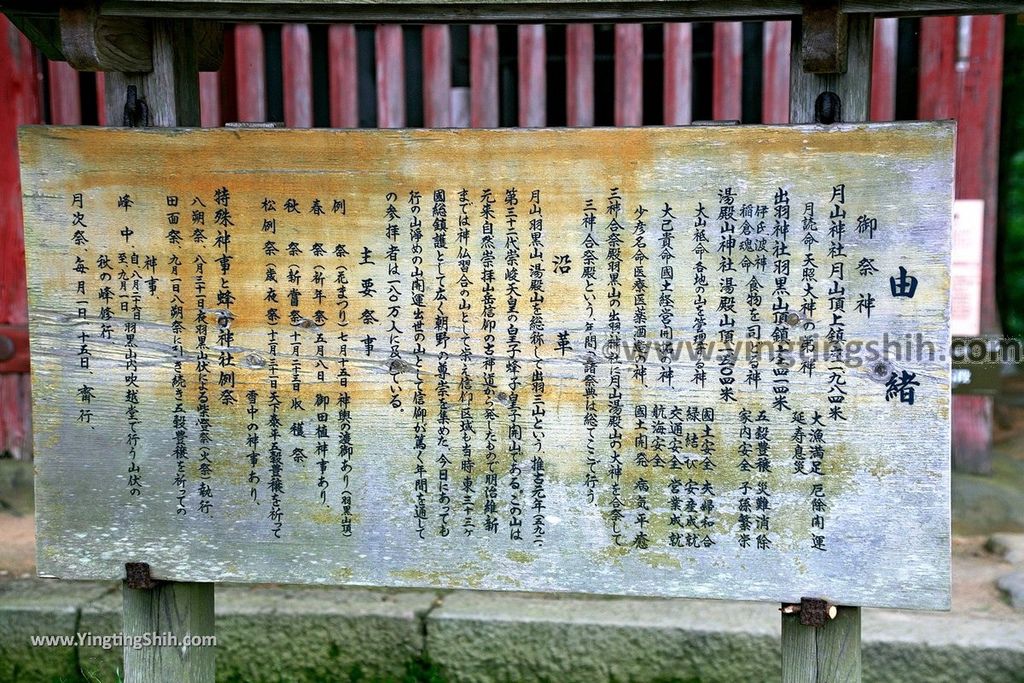 由緒
御祭神
月山神社月山頂上鎮座一九八四米
月読命天照大神の弟神
大漁満足 厄除開運
延寿息災
出羽神社羽黒山頂鎮座四一四米
伊氐波神
稲倉魂命 食物を司どる神
五穀豊穣 災難消除
家内安全 子孫繁栄
湯殿山神社湯殿山頂一五〇四米
大山祗命各地の山を管掌する神
國土安全 夫婦和合
縁結び 安産成就
大己貴命國土経営開拓の神、
交通安全 営業成就
航海安全
少彦名命医療医薬酒造の神、
國土開発 病気平癒
三神合祭殿羽黒山の出羽神社に月山湯殿山の大神を合祭して
三神合祭殿という、年間諸祭典は総てここで行う、
沿革
月山羽黒山湯殿山を総称して出羽三山という、推古元年(五九二、
第三十二代崇峻天皇の皇子蜂子皇子開山である。この山は
元来自然崇拝山岳信仰の古神道から発したもので明治維新
までは神仏習合の山として栄え信仰区域も当時、東三十三ヶ
國総鎮護として広く朝野の尊崇を集めた、今日にあっても
行の山浄めの山開運出世の山として信仰が篤く年間を通して
の参拝者は一八〇万人に及んでいる。
主要祭事
例 祭(花まつり)七月十五日 神輿の渡御あり(羽黒山頂)
春 祭(祈年祭)五月八日 御田植神事あり、
秋 祭(新嘗祭)十一月二十三日 収穫祭
松例祭(歳夜祭)十二月三十一日天下泰平五穀豊穣を祈って
雪中の神事あり、
特殊神事と蜂子神社例祭
八朔祭、八月三十一日夜羽黒山伏による柴燈祭(火祭)執行、
田面祭、九月一日八朔祭に引き続き五穀豊穣を祈っての
神事、
峰 中、自八月二十日至九月一日羽黒山内吹越堂で行う山伏の
秋の峰修行、
月次祭、毎月一日、十五日、斎行、
©www.yingtingshih.com
www.YingtingShih.com